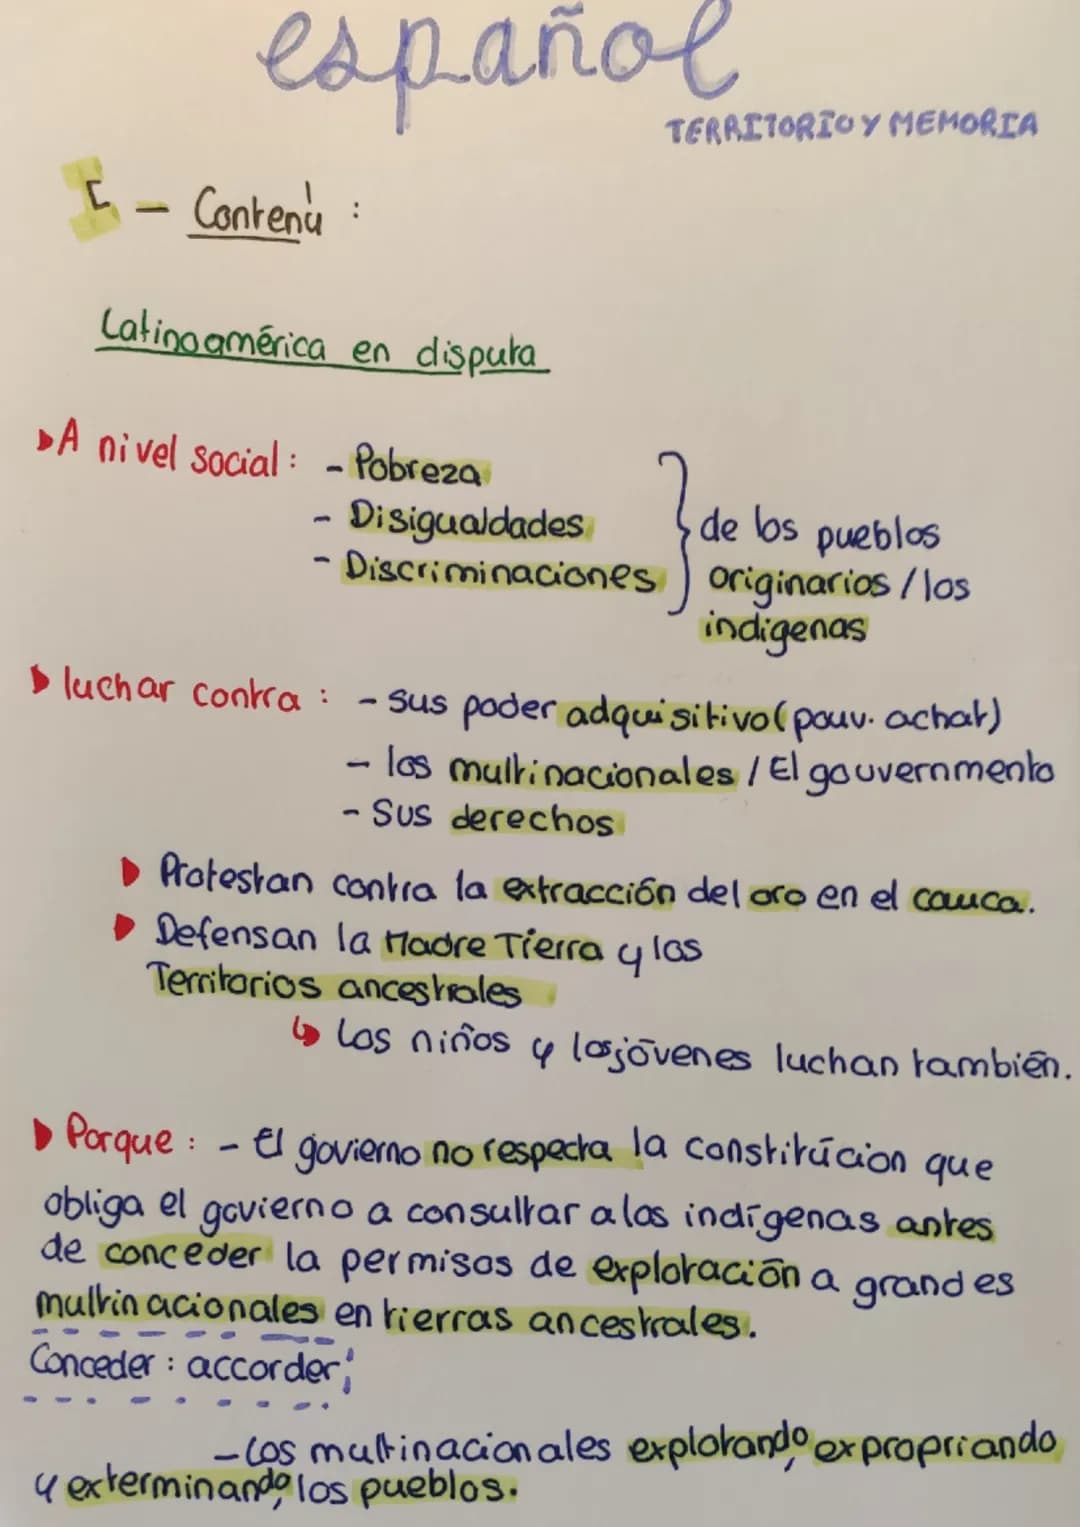 español
TERRITORIO Y MEMORIA
I - Contenú :
Latinoamérica en disputa
A nivel social : - Pobreza
- Disigualdades
- Discriminaciones
de los pueblos
originarios / los
indigenas
luchar contra : - sus poder adquisitivo (pouv. achat)
- las multinacionales / El gouvernmento
- Sus derechos
Protestan contra la extracción del oro en el cauca.
Defensan la Madre Tierra y las
Territorios ancestrales
Los niños y los jóvenes luchan también.
Porque : - El govierno no respecta la constitúcion que
obliga el govierno a consultar a los indígenas antes
de conceder la permisos de explotación a grandes
multinacionales en tierras ancestrales.
Conceder : accorder
- Los multinacionales explotando, expropriando
y exterminando, los pueblos.